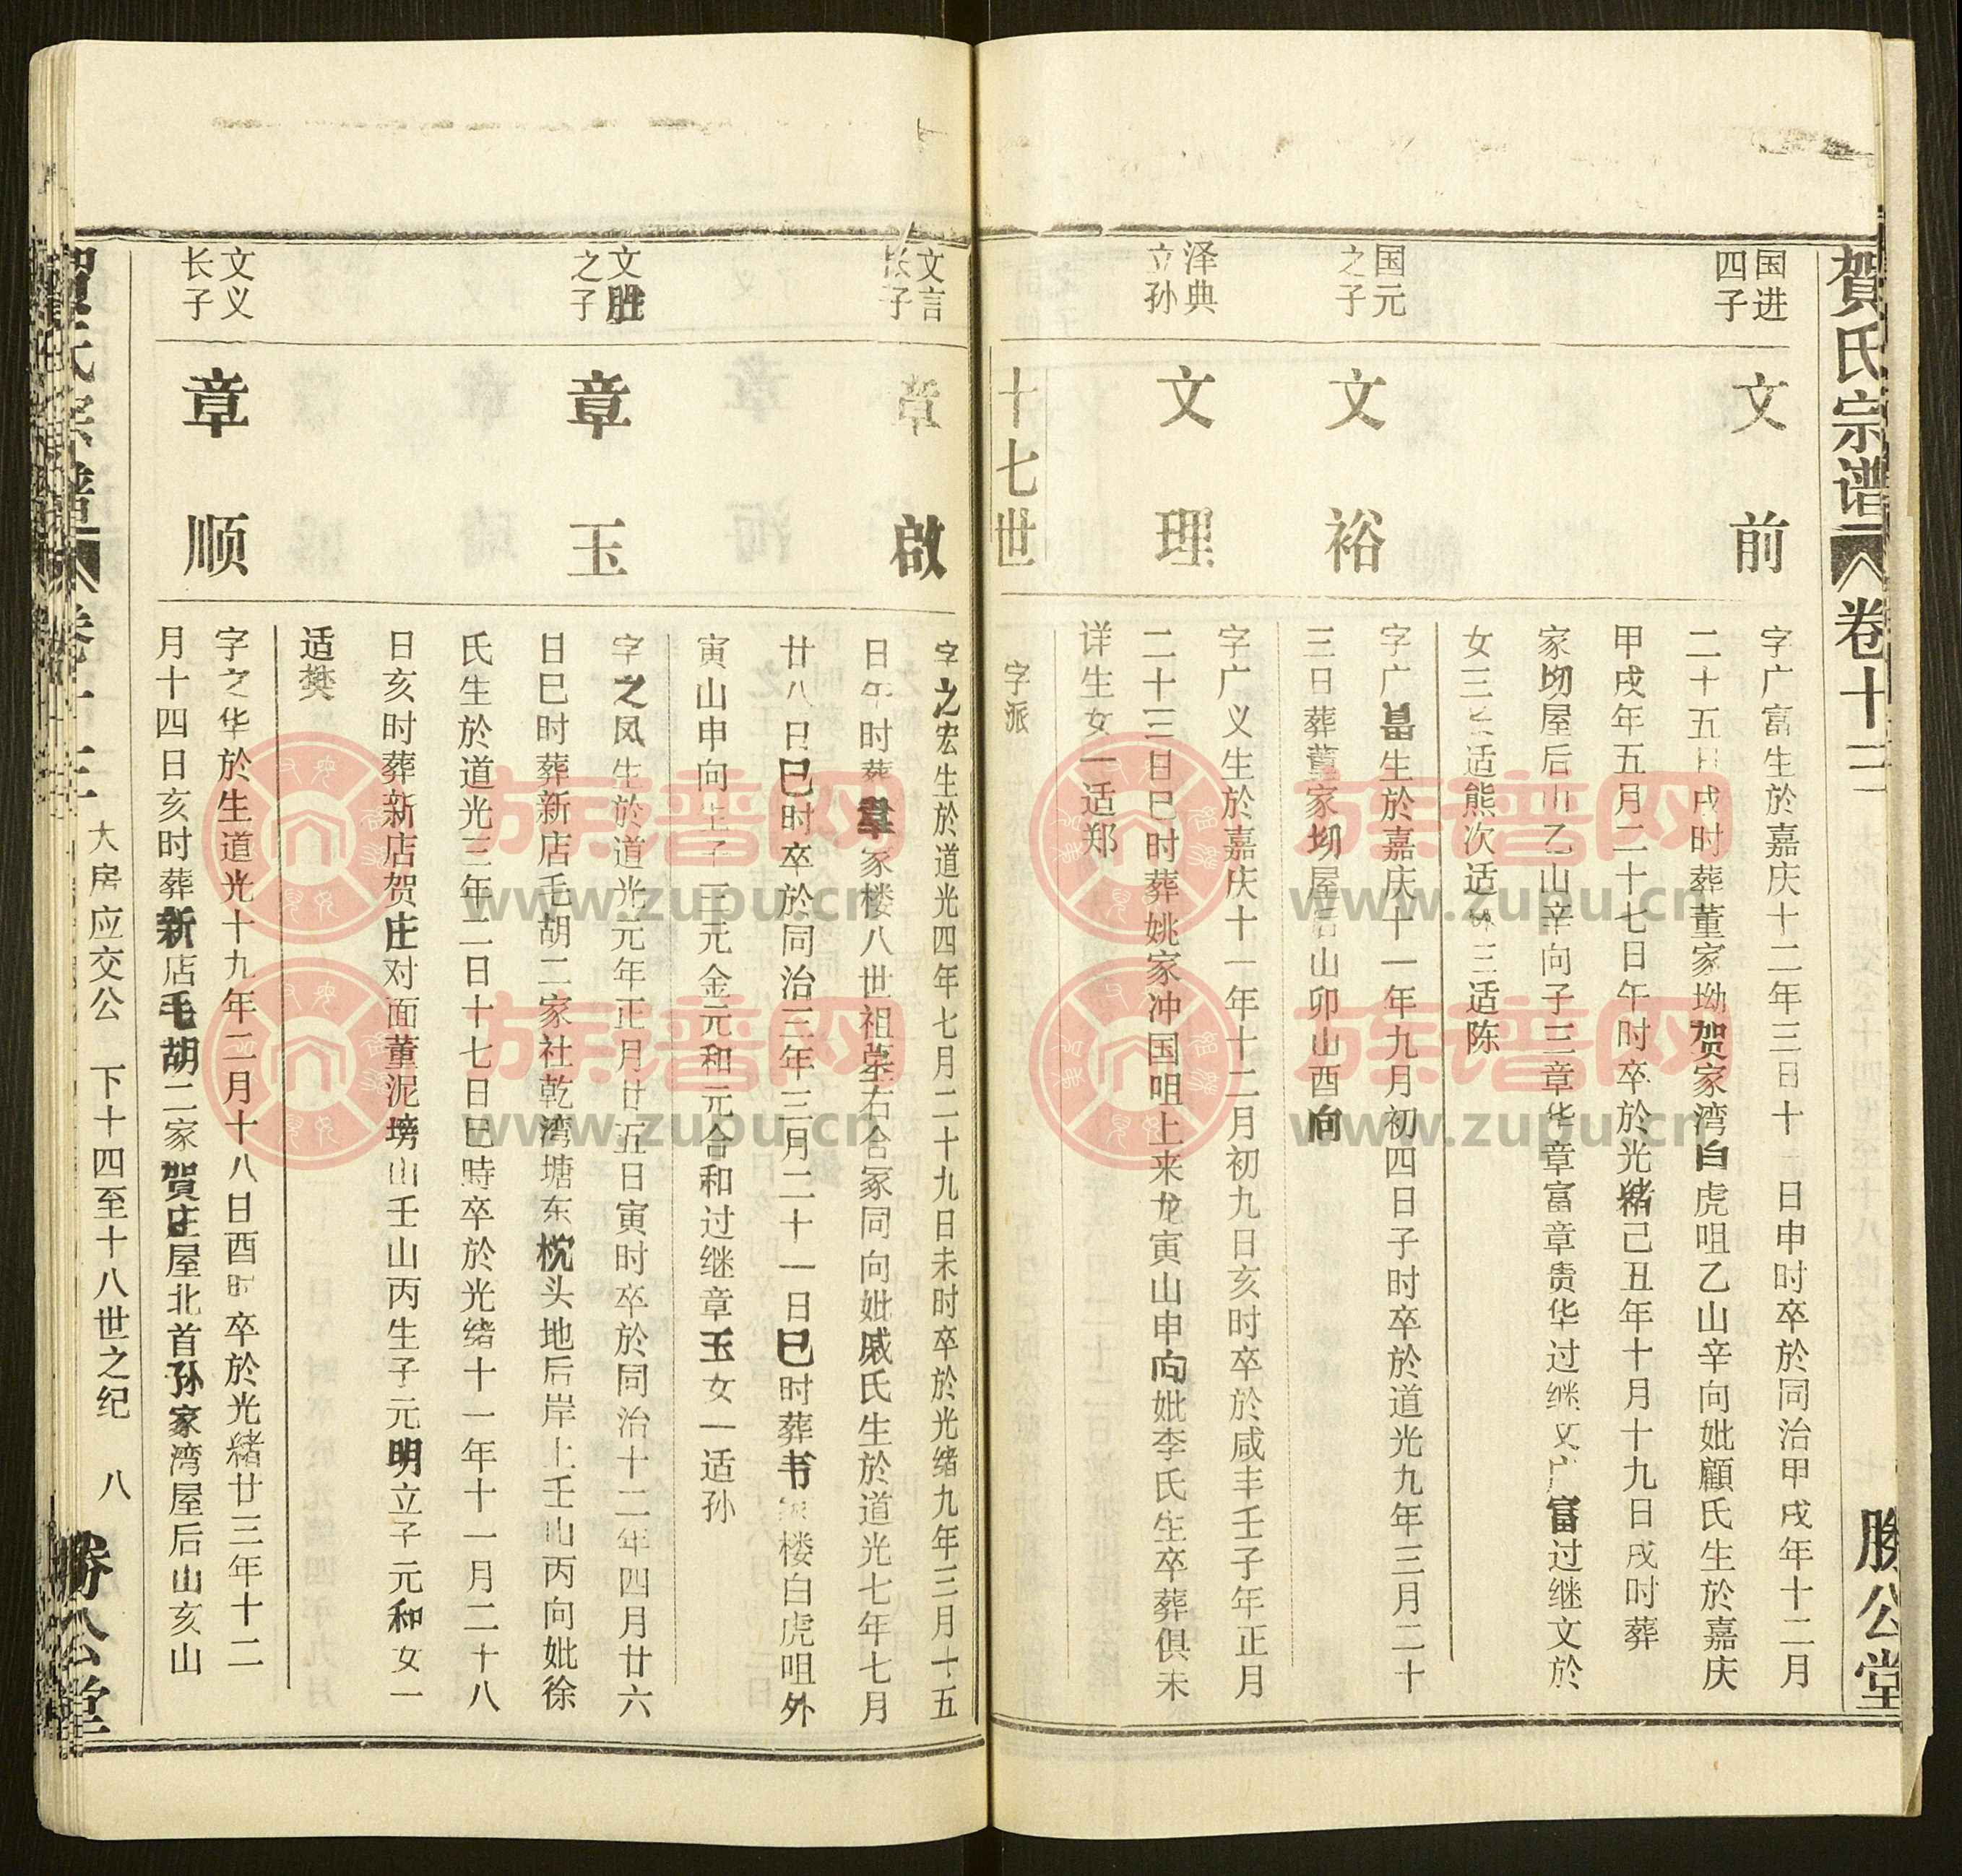 贺氏宗谱
卷十三
勝公堂
国进
四子
文前
字广富生於嘉庆十二年三日十一日申时卒於同治甲戌年十二月
二十五日戌时葬董家坳贺家湾白虎咀乙山辛向妣顧氏生於嘉庆
甲戌年五月二十七日午时卒於光緒己丑年十月十九日戌时葬
家坳屋后山乙山辛向子三章华章富章贵华过继文广富过继文於
女三长适熊次适 三适陈
国元
之子
文裕
字广富生於嘉庆十一年九月初四日子时卒於道光九年三月二十
三日葬董家坳屋后山卯山酉向
泽典
立孙
文理
字广义生於嘉庆十一年十二月初九日亥时卒於咸丰壬子年正月
二十三日巳时葬姚家冲国咀上来龙寅山申向妣李氏生卒葬俱未
详生女一适郑
十七世
字派
文言
长子
章啟
字之宏生於道光四年七月二十九日未时卒於光绪九年三月十五
日午时葬 家楼八世祖茔右合冢同向妣戚氏生於道光七年七月
廿八日巳时卒於同治三年三月二十一日巳时葬书 楼白虎咀外
寅山申向生子三元金元和元合和过继章玉女一适孙
文胜
之子
章玉
字之凤生於道光元年正月廿五日寅时卒於同治十二年四月廿六
日巳时葬新店毛胡二家社乾湾塘东枕头地后岸上壬山丙向妣徐
氏生於道光三年二日十七日巳時卒於光绪十一年十一月二十八
日亥时葬新店贺庄对面董泥塝山壬山丙生子元明立子元和女一
适樊
文义
长子
章顺
字之华於生道光十九年二月十八日酉时卒於光緒廿三年十二
月十四日亥时葬新店毛胡二家贺庄屋北首孙家湾屋后山亥山
大房应交公 下十四至十八世之纪 八
贺氏宗谱
卷十三
勝公堂